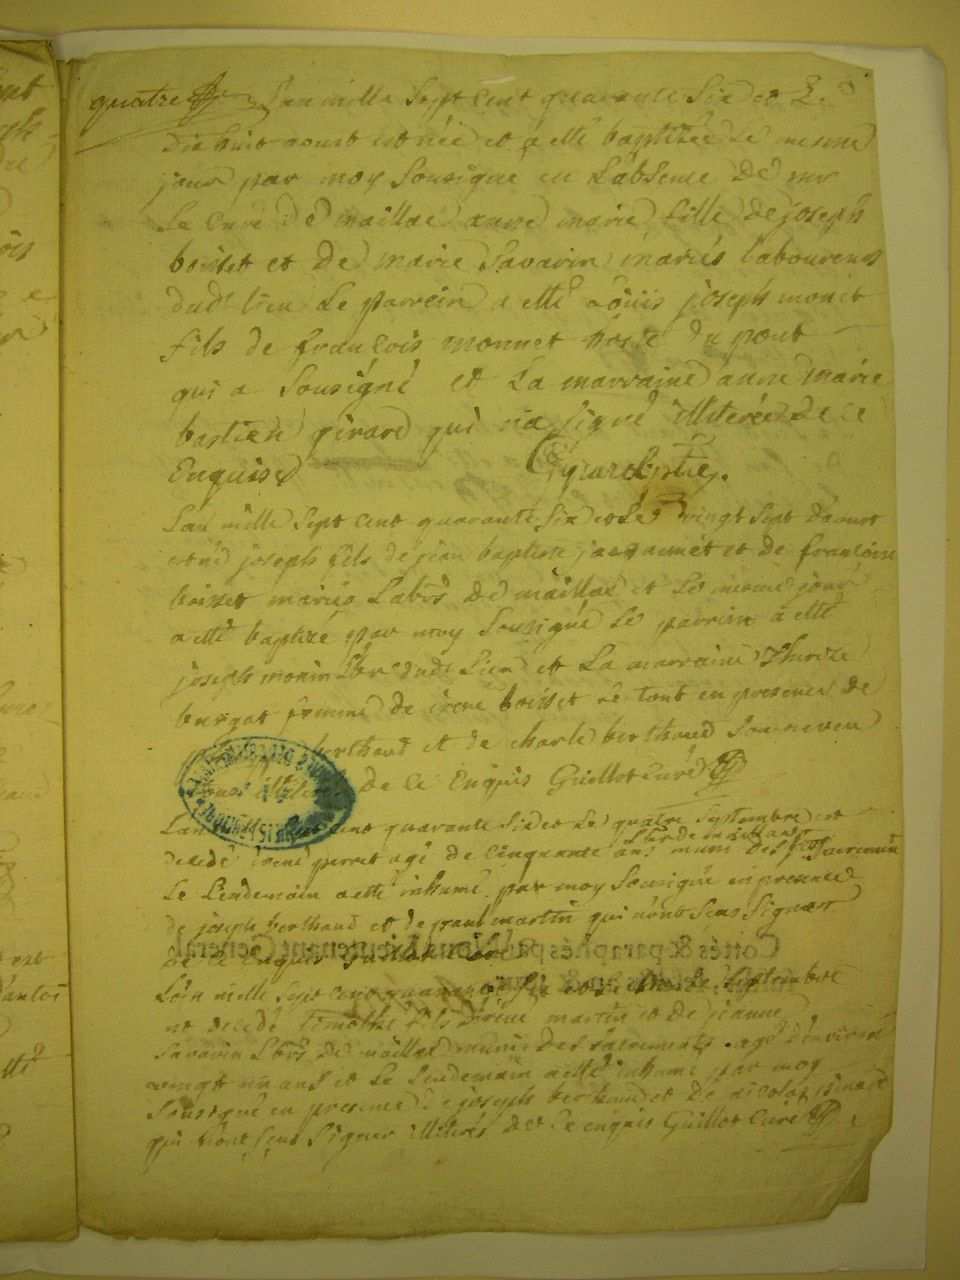 quatre L'an mille sept cent quarante six et Le
dix huit aoust est née et a etté baptizée Le mesme
jour par moy sousigné en L'absence de mr
Le Curé de maillac anne marie fille de joseph
boisset et de marie savarin mariés Laboureurs
dudt lieu Le parrein a etté Loüis joseph monet
fils de françois monnet du pont
qui a sousigné et La marraine anne marie
bastien girard qui n'a signé illiterée de ce
Enquise Girard ptre.
L'an mille sept cent quarante six et Le vingt sept d'aoust
est né joseph fils de jean baptiste et de françoise
boisset mariés Labrs de maillac et Le mesme jour
a etté baptizé par moy sousigné Le parrein a etté
joseph monin Lbr dudt Lieu et La marraine
burgat femme de irené boisset Le tout en presence de
berthaud et de charle berthaud son neveu
tous illiterés de ce Enquis Guillot Curé
L'an cent quarante six et Le quatre septembre est
Lbr de maillac
decedé irené perret agé de cinquante ans muni des sts sacremens
Le Lendemain a etté inhumé par moy sousigné en presence
de joseph berthaud et de paul martin qui n'ont sceu signer
de ce enquis Guillot Curé
Cottés & paraphés par Nous Lieutenant General
L'an mille sept cent quarante six et Le septembre
est decedé Timothé fils d'irené martin et de jeanne
savarin Lbrs de maillac muni des sacrements agé d'environ
vingt un ans et Le Lendemain a etté inhumé par moy
sousigné en presence de joseph berthaud et de nicolas
qui n'ont sceu signer illiterés de ce enquis Guillot Curé